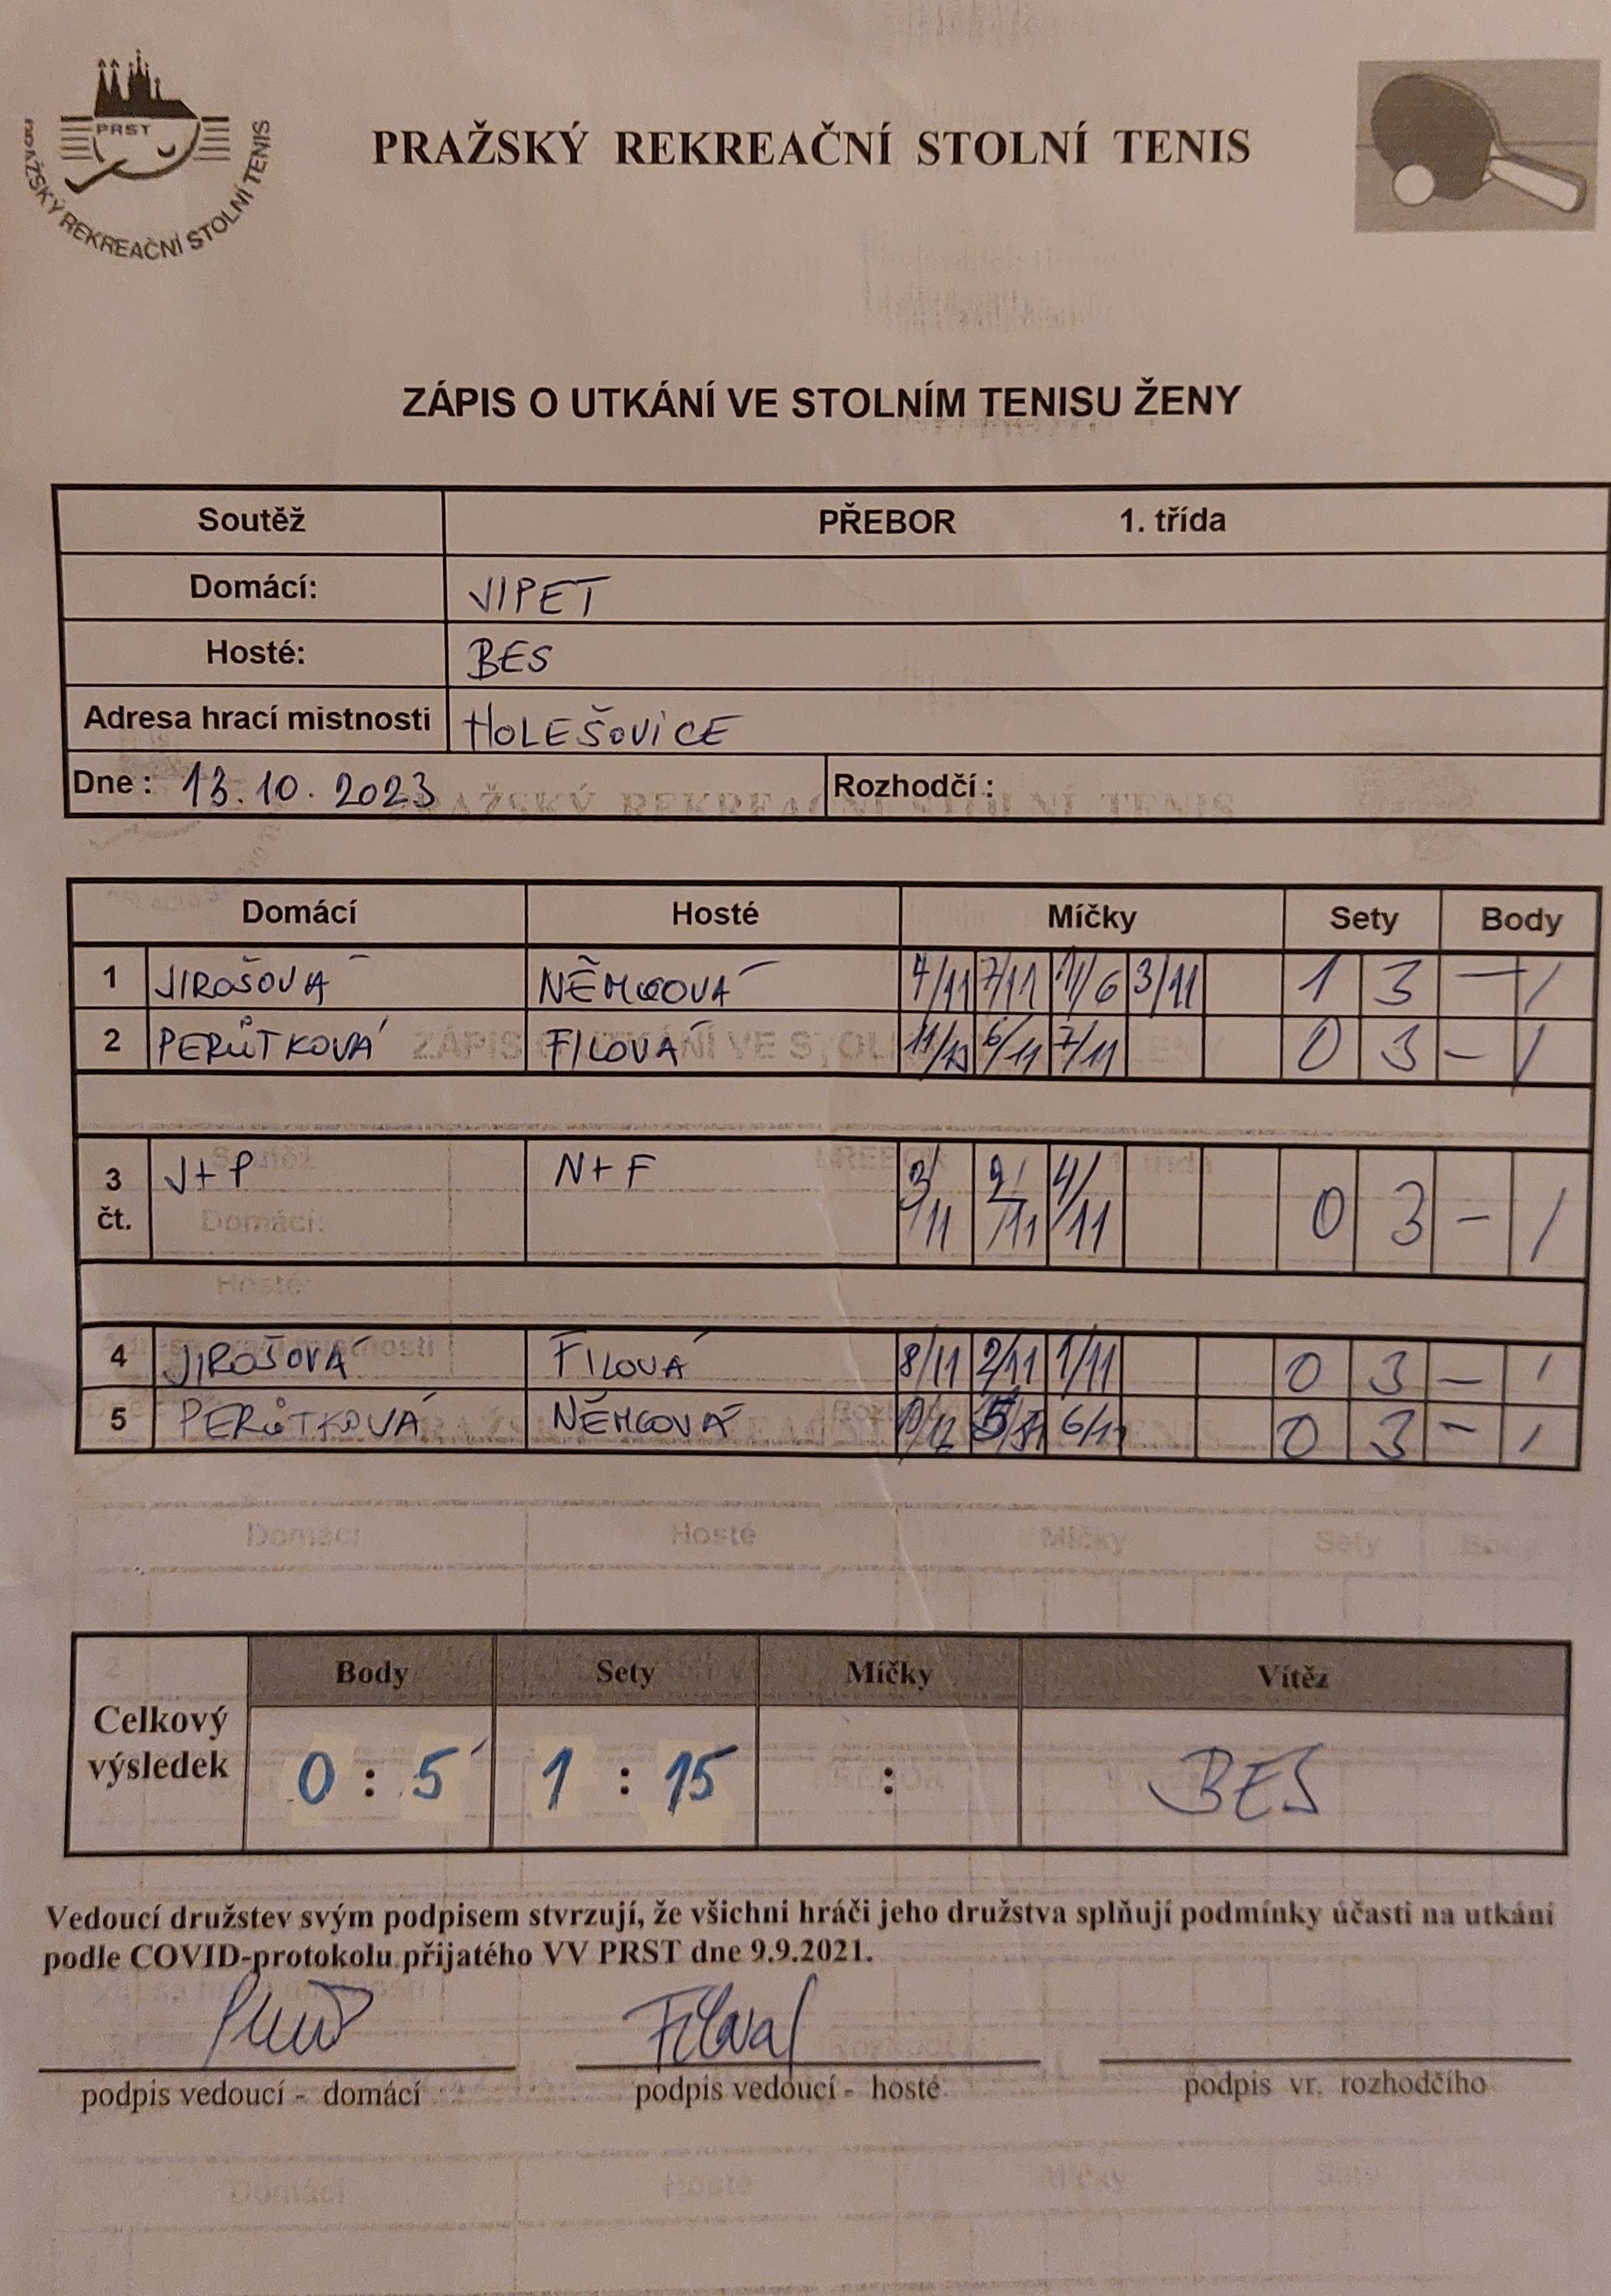 PRST
PRAŽSKÝ REKREAČNÍ STOLNÍ TENIS
PRAŽSKÝ REKREAČNÍ STOLNÍ TENIS
ZÁPIS O UTKÁNÍ VE STOLNÍM TENISU ŽENY
Soutěž PŘEBOR 1. třída
Domácí: JIPET
Hosté: BES
Adresa hrací mistnosti HOLEŠOVICE
Dne : 13.10.2023 Rozhodčí :
Domácí Hosté Míčky Sety Body
1 JIROŠOVÁ NĚMCOVÁ 4/11 7/11 11/6 3/11 1 3 - /
2 PERŮTKOVÁ FILOVÁ 11/13 6/11 7/11 0 3 - /
3 čt. J+P N+F 3/11 2/11 4/11 0 3 - /
4 JIROŠOVÁ FILOVÁ 8/11 2/11 1/11 0 3 - /
5 PERŮTKOVÁ NĚMCOVÁ 10/12 6/11 0 3 - /
Body Sety Míčky Vítěz
Celkový výsledek 0 : 5 1 : 15 : BES
Vedoucí družstev svým podpisem stvrzují, že všichni hráči jeho družstva splňují podmínky účasti na utkání
podle COVID-protokolu přijatého VV PRST dne 9.9.2021.
Filová
podpis vedoucí - domácí podpis vedoucí - hosté podpis vr. rozhodčího